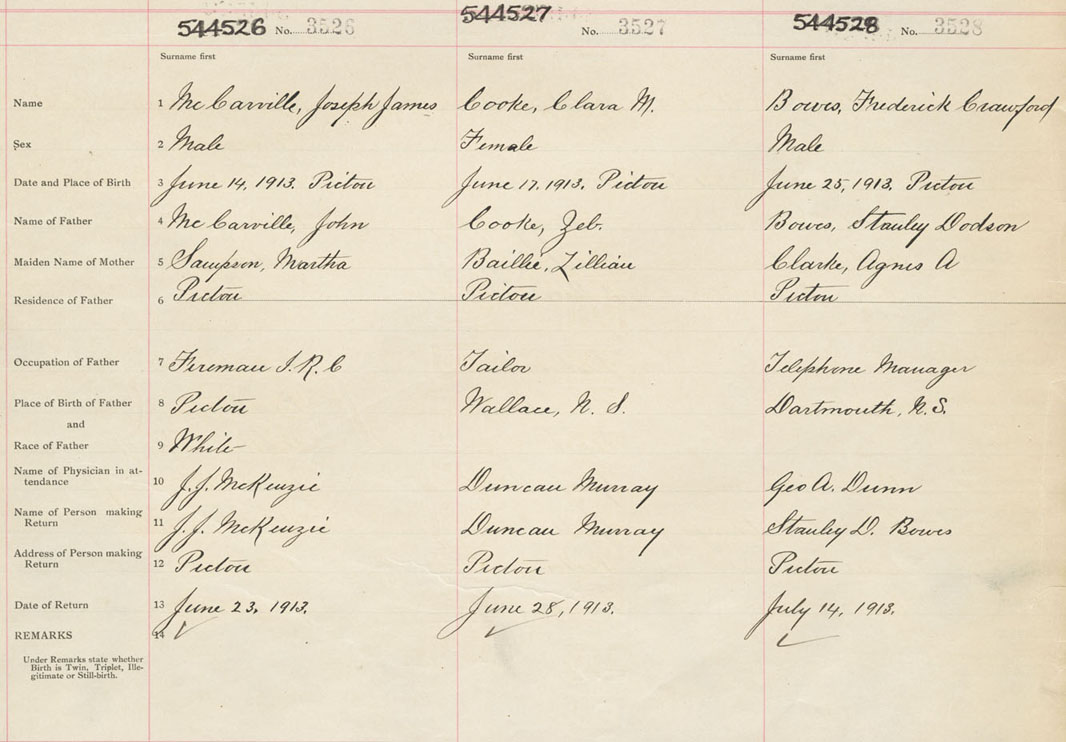 544526 No. 3526 544527 No. 3527 544528 No. 3528
Surname first Surname first Surname first
Name 1 McCarville, Joseph James Cooke, Clara M. Bowes, Frederick Crawford
Sex 2 Male Female Male
Date and Place of Birth 3 June 14, 1913. Pictou June 17, 1913. Pictou June 25, 1913. Pictou
Name of Father 4 McCarville, John Cooke, Zeb. Bowes, Stanley Dodson
Maiden Name of Mother 5 Sampson, Martha Baillie, Lillian Clarke, Agnes A
Residence of Father 6 Pictou Pictou Pictou
Occupation of Father 7 Fireman I.R.C Tailor Telephone Manager
Place of Birth of Father 8 Pictou Wallace, N. S. Dartmouth, N.S.
and
Race of Father 9 White
Name of Physician in at-
tendance 10 J.J. McKenzie Duncan Murray Geo A. Dunn
Name of Person making
Return 11 J.J. McKenzie Duncan Murray Stanley D. Bowes
Address of Person making
Return 12 Pictou Pictou Pictou
Date of Return 13 June 23, 1913. June 28, 1913. July 14, 1913.
REMARKS 14
Under Remarks state whether
Birth is Twin, Triplet, Ille-
gitimate or Still-birth.